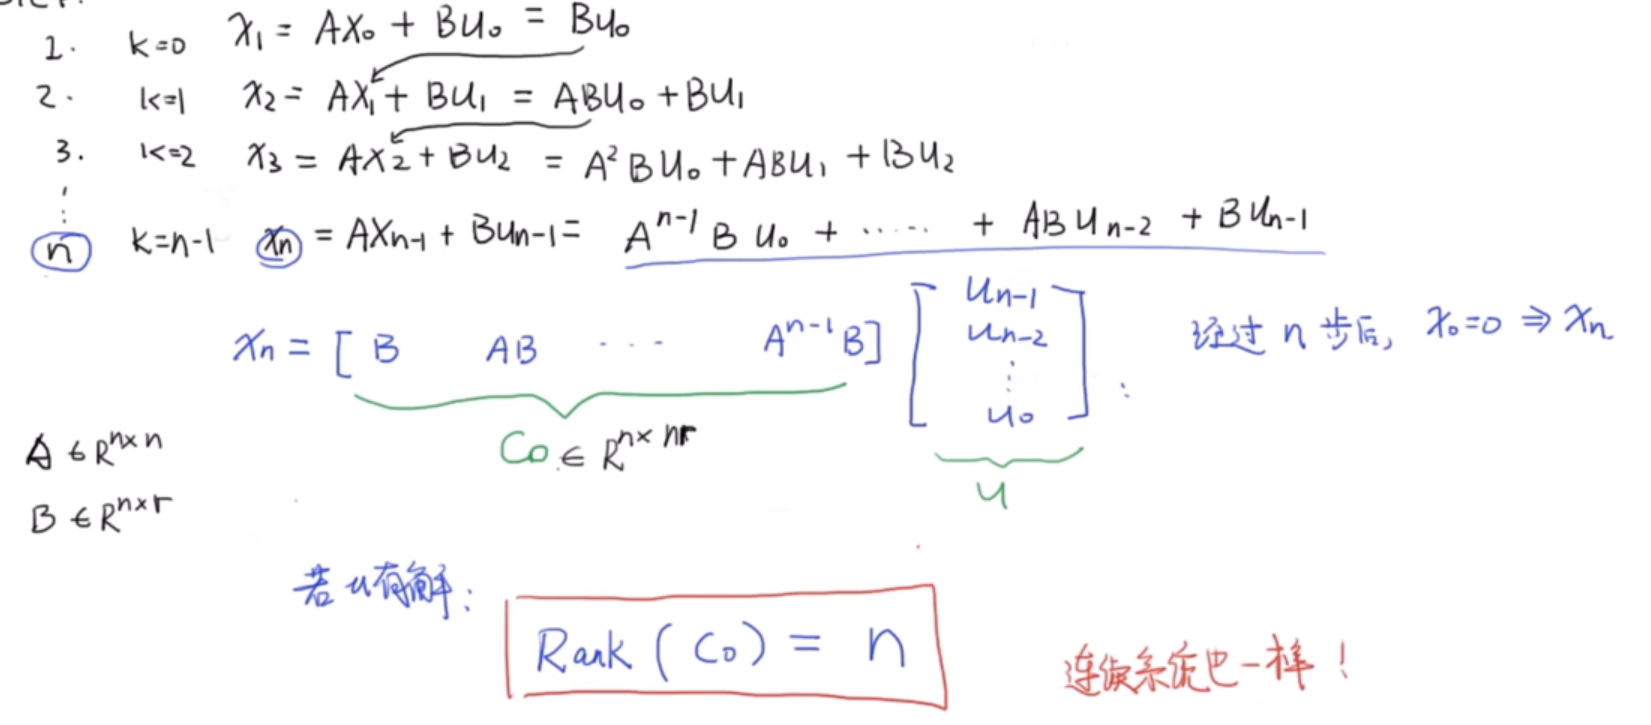 1. k=0 x₁ = Ax₀ + Bu₀ = Bu₀
2. k=1 x₂ = Ax₁ + Bu₁ = ABu₀ + Bu₁
3. k=2 x₃ = Ax₂ + Bu₂ = A²Bu₀ + ABu₁ + Bu₂
⋮
n k=n-1 xₙ = Axₙ₋₁ + Buₙ₋₁ = Aⁿ⁻¹Bu₀ + ..... + ABuₙ₋₂ + Buₙ₋₁
xₙ = [B AB ... Aⁿ⁻¹B] [uₙ₋₁ uₙ₋₂ ⋮ u₀] : 经过n步后, x₀=0 ⇒ xₙ
A ∈ Rⁿˣⁿ
Co ∈ Rⁿˣⁿʳ
u
B ∈ Rⁿˣʳ
若u有解:
Rank (Co) = n
连续系统也一样!